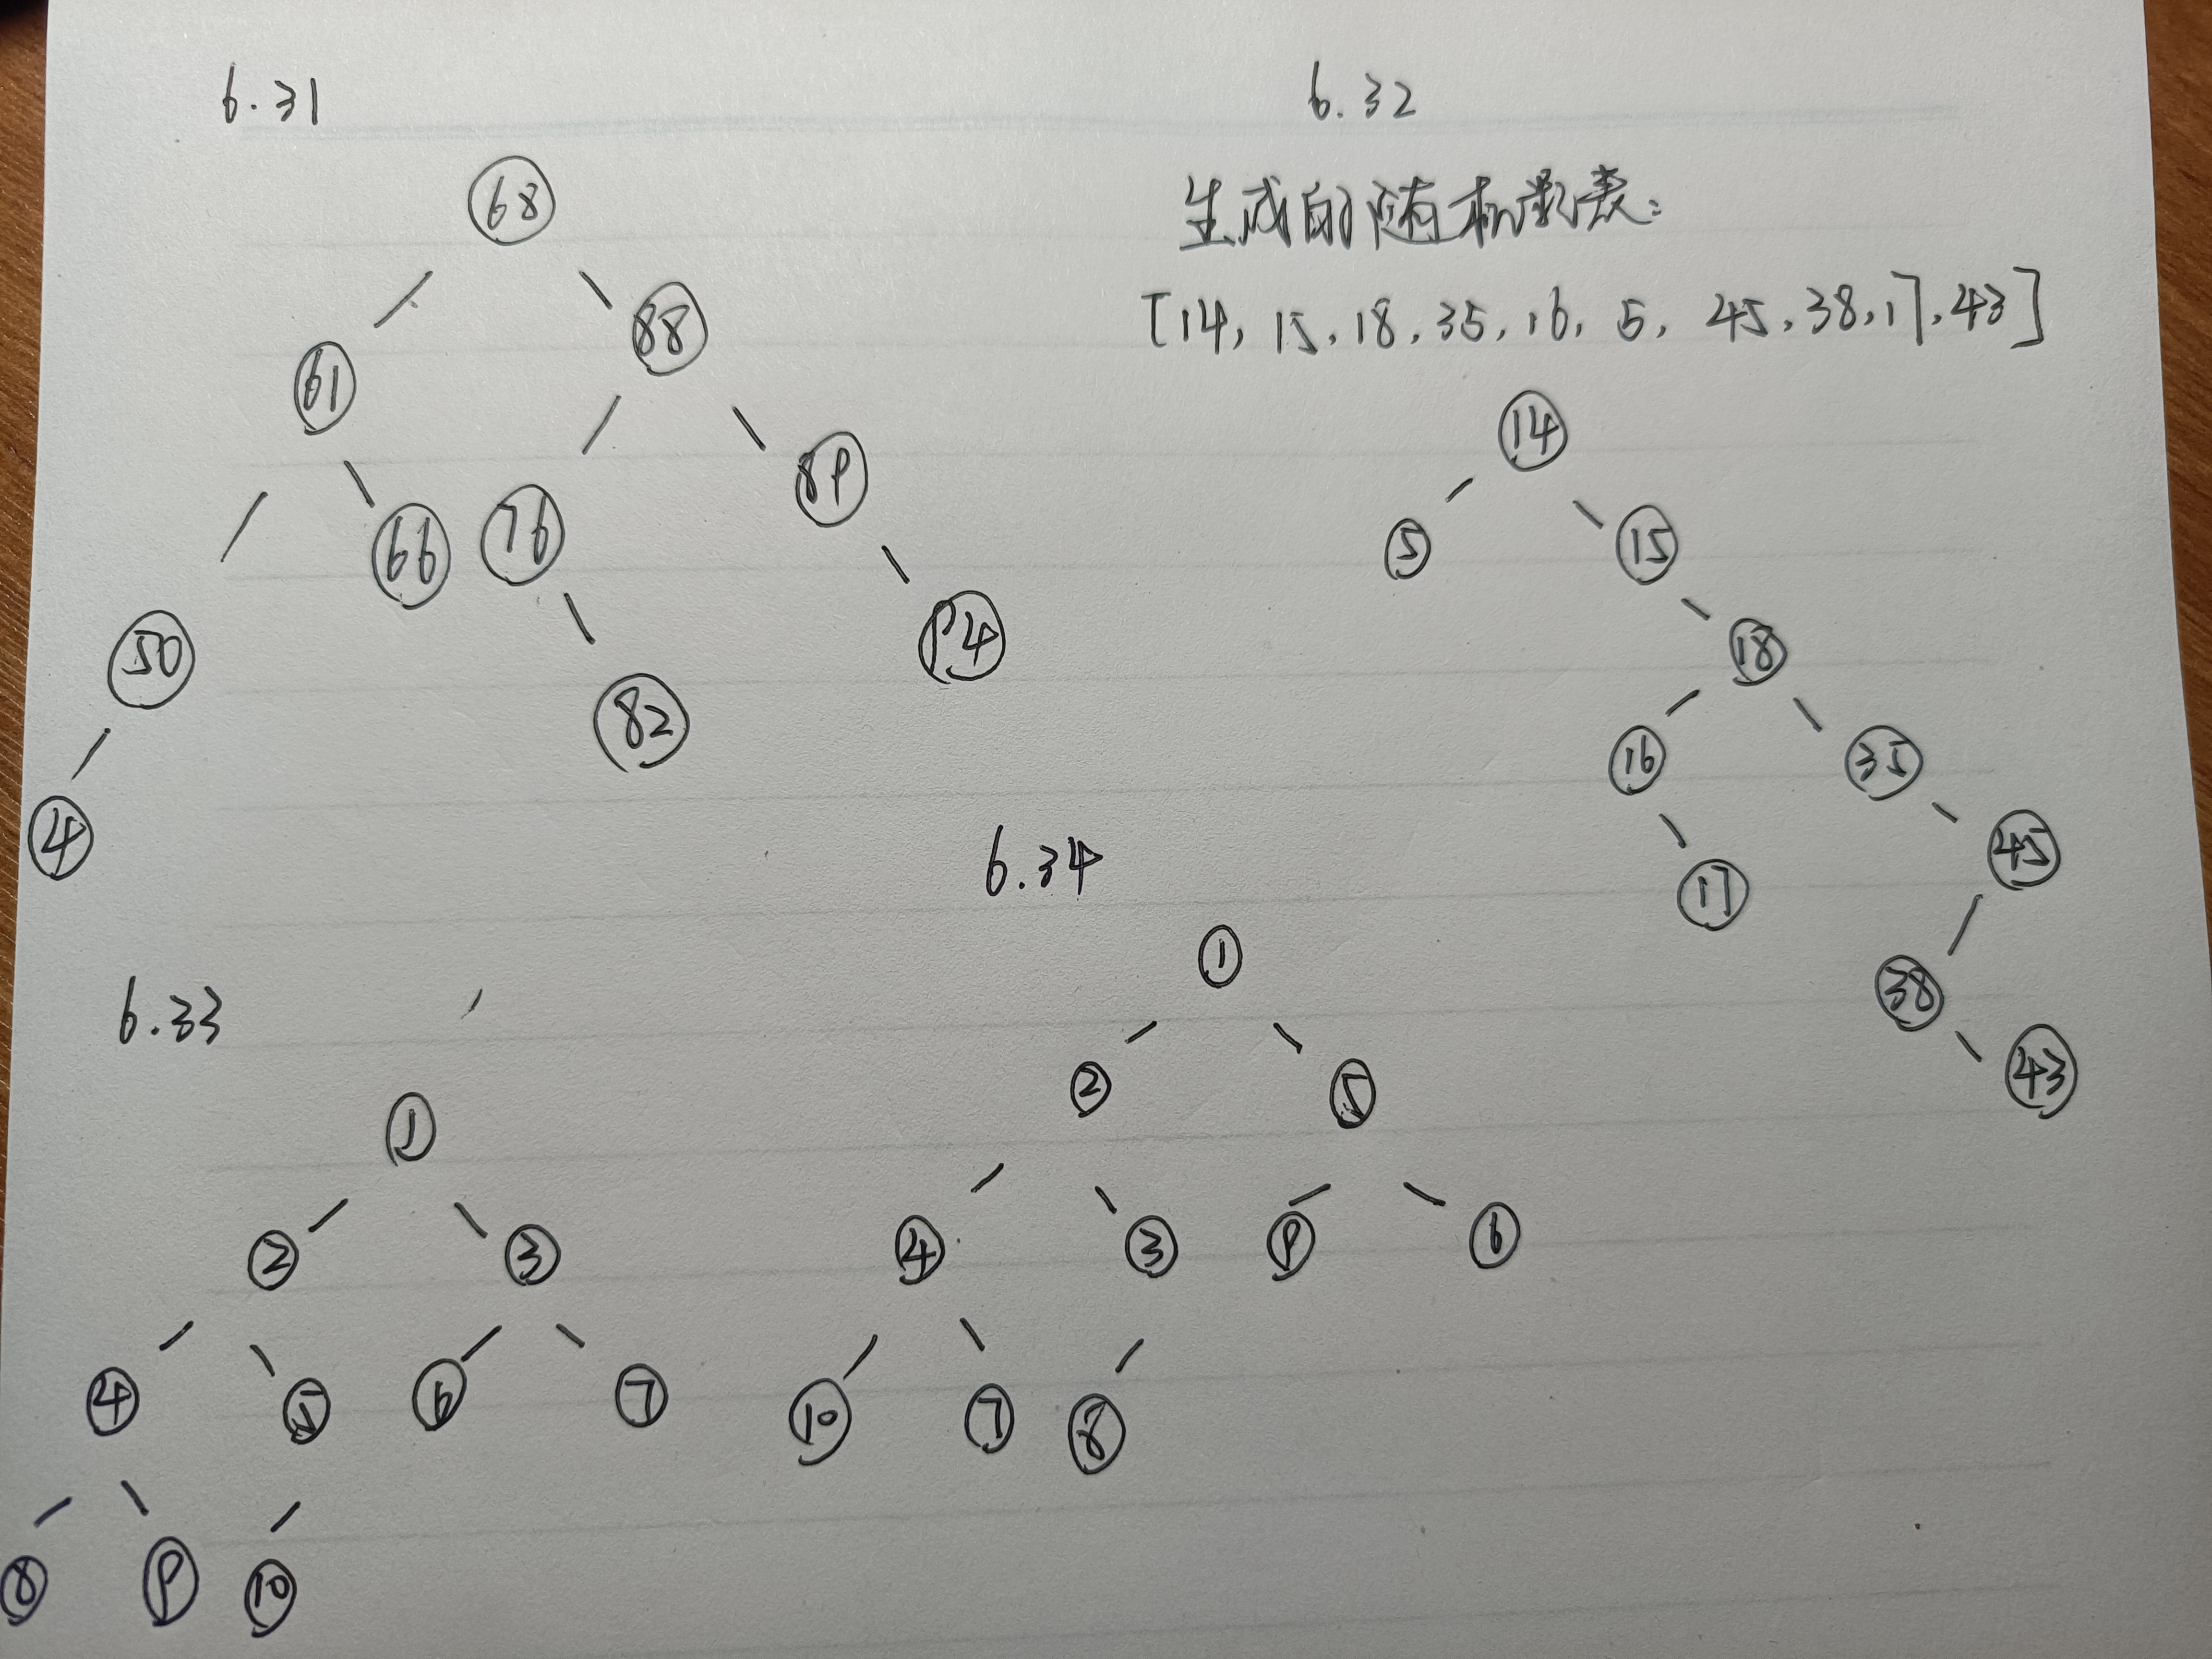 6.31
68
61 88
50 66 76 89
4 82 94
6.32
生成的随机数表:
[14, 15, 18, 35, 16, 5, 45, 38, 17, 43]
14
5 15
18
16 35
17 45
38
43
6.33
1
2 3
4 5 6 7
8 9 10
6.34
1
2 5
4 3 9 6
10 7 8